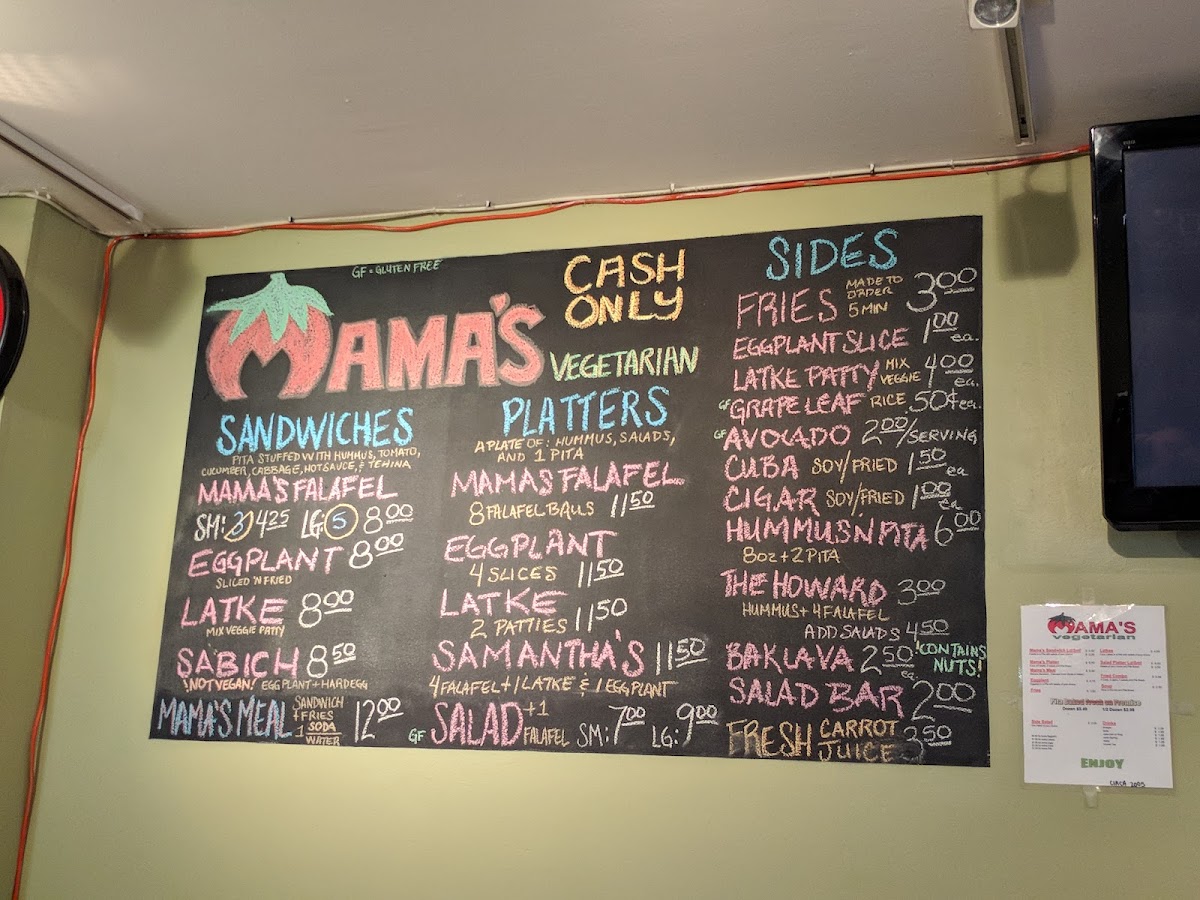 GF = GLUTEN FREE
MAMA'S
VEGETARIAN
CASH
ONLY
SANDWICHES
PITA STUFFED WITH HUMMUS, TOMATO,
CUCUMBER, CABBAGE, HOT SAUCE, & TEHINA
MAMA'S FALAFEL
SM: 3 4.25 LG: 5 8.00
EGGPLANT 8.00
SLICED 'N FRIED
LATKE 8.00
MIX VEGGIE PATTY
SABICH 8.50
!NOT VEGAN! EGGPLANT + HARD EGG
MAMA'S MEAL SANDWICH + FRIES + 1 SODA WATER 12.00
PLATTERS
A PLATE OF: HUMMUS, SALADS,
AND 1 PITA
MAMAS FALAFEL
8 FALAFEL BALLS 11.50
EGGPLANT
4 SLICES 11.50
LATKE
2 PATTIES 11.50
SAMANTHA'S 11.50
4 FALAFEL + 1 LATKE & 1 EGGPLANT
GF SALAD +1 FALAFEL SM: 7.00 LG: 9.00
SIDES
FRIES MADE TO ORDER 5 MIN 3.00
EGGPLANT SLICE 1.00 ea.
LATKE PATTY MIX VEGGIE 4.00 ea.
GF GRAPE LEAF RICE .50¢ ea.
GF AVOCADO 2.00/SERVING
CUBA SOY/FRIED 1.50 ea
CIGAR SOY/FRIED 1.00 ea
HUMMUS N PITA 6.00
8oz + 2 PITA
THE HOWARD 3.00
HUMMUS + 4 FALAFEL
ADD SALADS 4.50
BAKLAVA 2.50 ea. !CONTAINS NUTS!
SALAD BAR 2.00
FRESH CARROT JUICE 3.50
MAMA'S
vegetarian
ENJOY
CIRCA 2005